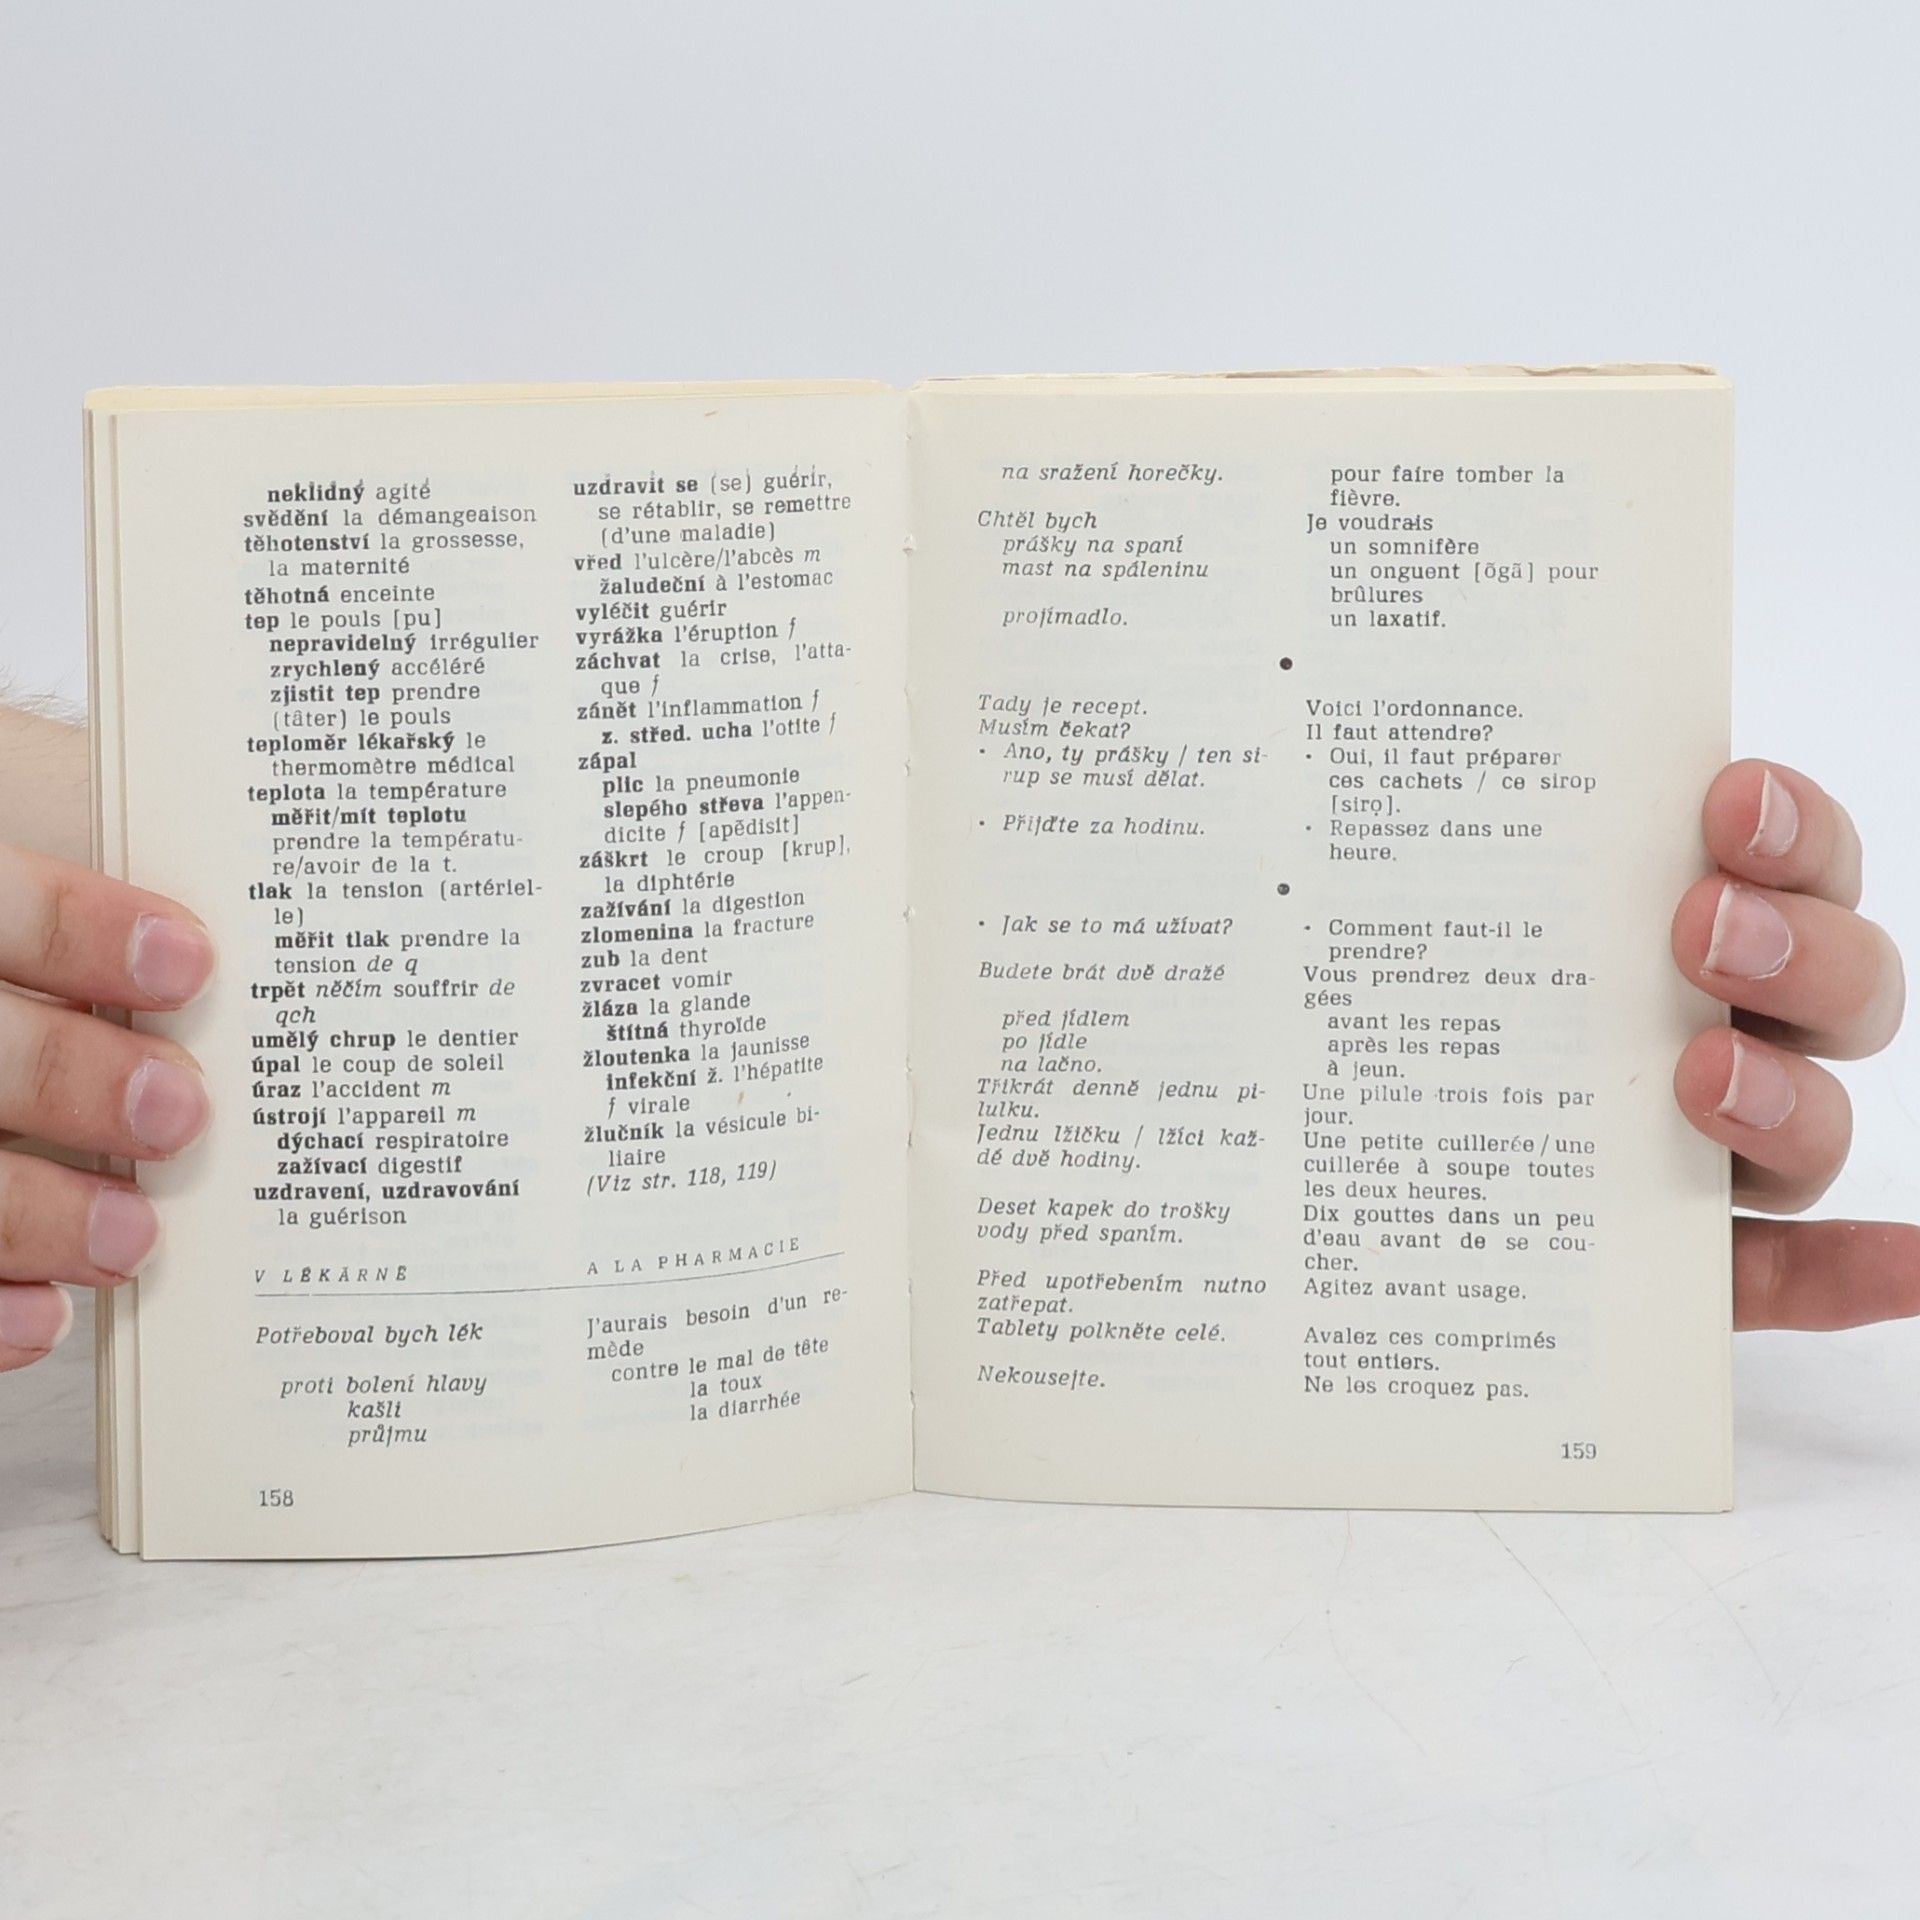 neklidný agité
svědění la démangeaison
těhotenství la grossesse,
la maternité
těhotná enceinte
tep le pouls [pu]
nepravidelný irrégulier
zrychlený accéléré
zjistit tep prendre
(tâter) le pouls
teploměr lékařský le
thermomètre médical
teplota la température
měřit/mít teplotu
prendre la températu-
re/avoir de la t.
tlak la tension (artériel-
le)
měřit tlak prendre la
tension de q
trpět něčím souffrir de
qch
umělý chrup le dentier
úpal le coup de soleil
úraz l'accident m
ústrojí l'appareil m
dýchací respiratoire
zažívací digestif
uzdravení, uzdravování
la guérison
uzdravit se (se) guérir,
se rétablir, se remettre
(d'une maladie)
vřed l'ulcère/l'abcès m
žaludeční à l'estomac
vyléčit guérir
vyrážka l'éruption f
záchvat la crise, l'atta-
que f
zánět l'inflammation f
z. střed. ucha l'otite f
zápal
plic la pneumonie
slepého střeva l'appen-
dicite f [apẽdisit]
záškrt le croup [krup],
la diphtérie
zažívání la digestion
zlomenina la fracture
zub la dent
zvracet vomir
žláza la glande
štítná thyroïde
žloutenka la jaunisse
infekční ž. l'hépatite
f virale
žlučník la vésicule bi-
liaire
(Viz str. 118, 119)
V LÉKÁRNĚ
A LA PHARMACIE
Potřeboval bych lék
proti bolení hlavy
kašli
průjmu
J'aurais besoin d'un re-
mède
contre le mal de tête
la toux
la diarrhée
158
na sražení horečky.
Chtěl bych
prášky na spaní
mast na spáleninu
projímadlo.
pour faire tomber la
fièvre.
Je voudrais
un somnifère
un onguent [õgã] pour
brûlures
un laxatif.
•
Tady je recept.
Musím čekat?
• Ano, ty prášky / ten si-
rup se musí dělat.
• Přijďte za hodinu.
Voici l'ordonnance.
Il faut attendre?
• Oui, il faut préparer
ces cachets / ce sirop
[sirọ].
• Repassez dans une
heure.
•
• Jak se to má užívat?
Budete brát dvě dražé
před jídlem
po jídle
na lačno.
Třikrát denně jednu pi-
lulku.
Jednu lžičku / lžíci kaž-
dé dvě hodiny.
Deset kapek do trošky
vody před spaním.
Před upotřebením nutno
zatřepat.
Tablety polkněte celé.
Nekousejte.
• Comment faut-il le
prendre?
Vous prendrez deux dra-
gées
avant les repas
après les repas
à jeun.
Une pilule trois fois par
jour.
Une petite cuillerée / une
cuillerée à soupe toutes
les deux heures.
Dix gouttes dans un peu
d'eau avant de se cou-
cher.
Agitez avant usage.
Avalez ces comprimés
tout entiers.
Ne les croquez pas.
159